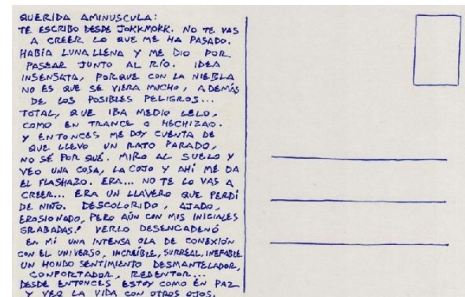 QUERIDA AMINUSCULA:
TE ESCRIBO DESDE JOKKMOKK. NO TE VAS
A CREER LO QUE ME HA PASADO.
HABÍA LUNA LLENA Y ME DIO POR
PASEAR JUNTO AL RÍO. IDEA
INSENSATA, PORQUE CON LA NIEBLA
NO ES QUE SE VIERA MUCHO, ADEMÁS
DE LOS POSIBLES PELIGROS...
TOTAL, QUE IBA MEDIO LELO,
COMO EN TRANCE O HECHIZADO.
Y ENTONCES ME DOY CUENTA DE
QUE LLEVO UN RATO PARADO,
NO SÉ POR QUÉ. MIRO AL SUELO Y
VEO UNA COSA, LA COJO Y AHÍ ME DA
EL FLASHAZO. ERA... NO TE LO VAS A
CREER... ERA UN LLAVERO QUE PERDÍ
DE NIÑO. DESCOLORIDO, AJADO,
EROSIONADO, PERO AÚN CON MIS INICIALES
GRABADAS! VERLO DESENCADENÓ
EN MÍ UNA INTENSA OLA DE CONEXIÓN
CON EL UNIVERSO, INCREÍBLE, SURREAL, INEFABLE
UN HONDO SENTIMIENTO DESMANTELADOR,
CONFORTADOR, REDENTOR...
DESDE ENTONCES ESTOY COMO EN PAZ
Y VEO LA VIDA CON OTROS OJOS.